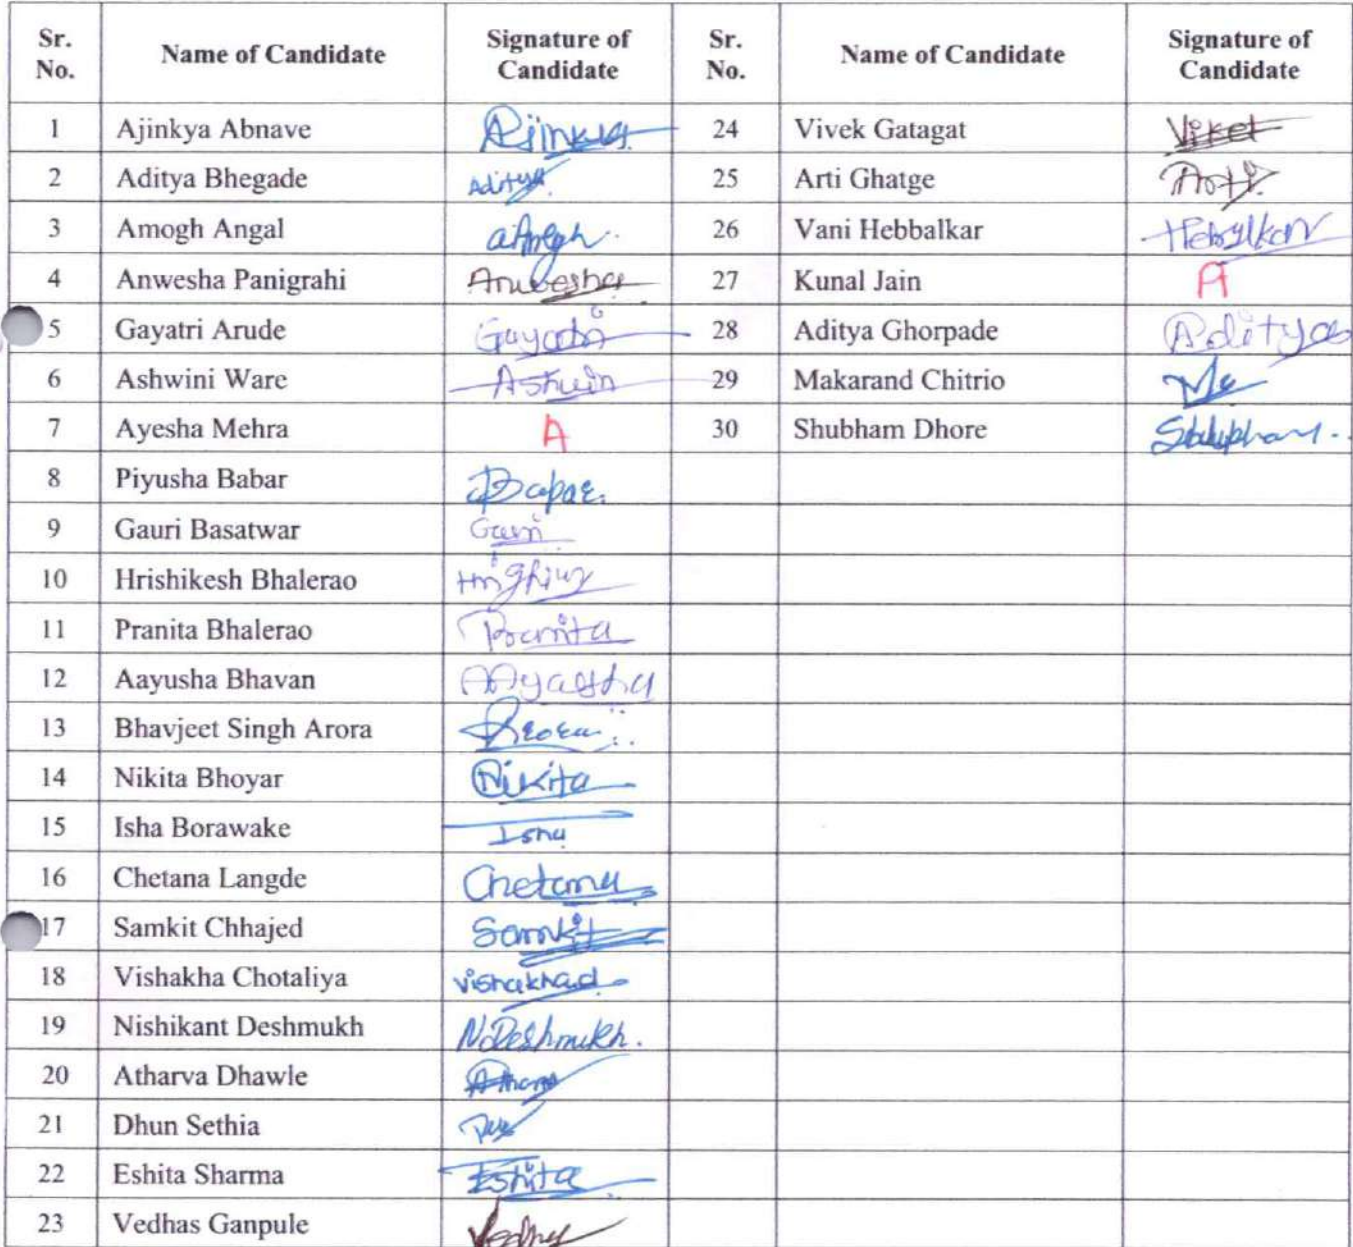 Sr. No. Name of Candidate Signature of Candidate Sr. No. Name of Candidate Signature of Candidate
1 Ajinkya Abnave Ajinkya 24 Vivek Gatagat
2 Aditya Bhegade Aditya 25 Arti Ghatge Arti
3 Amogh Angal amogh 26 Vani Hebbalkar
4 Anwesha Panigrahi Anwesha 27 Kunal Jain A
5 Gayatri Arude Gayatri 28 Aditya Ghorpade Aditya
6 Ashwini Ware Ashwin 29 Makarand Chitrio
7 Ayesha Mehra A 30 Shubham Dhore
8 Piyusha Babar Babar.
9 Gauri Basatwar Gauri
10 Hrishikesh Bhalerao
11 Pranita Bhalerao Pranita
12 Aayusha Bhavan
13 Bhavjeet Singh Arora Arora
14 Nikita Bhoyar Nikita
15 Isha Borawake Isha
16 Chetana Langde Chetana
17 Samkit Chhajed Samkit
18 Vishakha Chotaliya
19 Nishikant Deshmukh N.Deshmukh.
20 Atharva Dhawle
21 Dhun Sethia
22 Eshita Sharma Eshita
23 Vedhas Ganpule